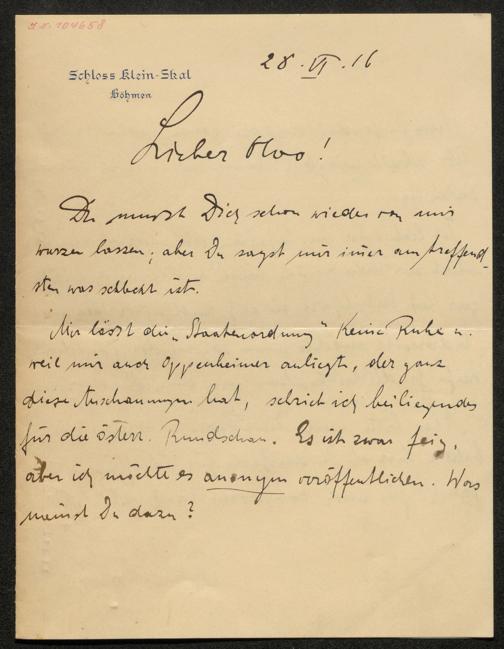 I.N. 104658
28.VI.16
Schloss Klein-Skal
Böhmen
Lieber Otto!
Du musst Dich schon wieder von mir
wurzen lassen; aber Du sagst mir imer am treffend-
sten was schlecht ist.
Mir lässt die „Staatenordnung" keine Ruhe u.
weil mir auch Oppenheimer anliegt, der ganz
diese Anschauungen hat, schrieb ich beiliegendes
für die österr. Rundschau. Es ist zwar feig,
aber ich möchte es anonym veröffentlichen. Was
meinst Du dazu?